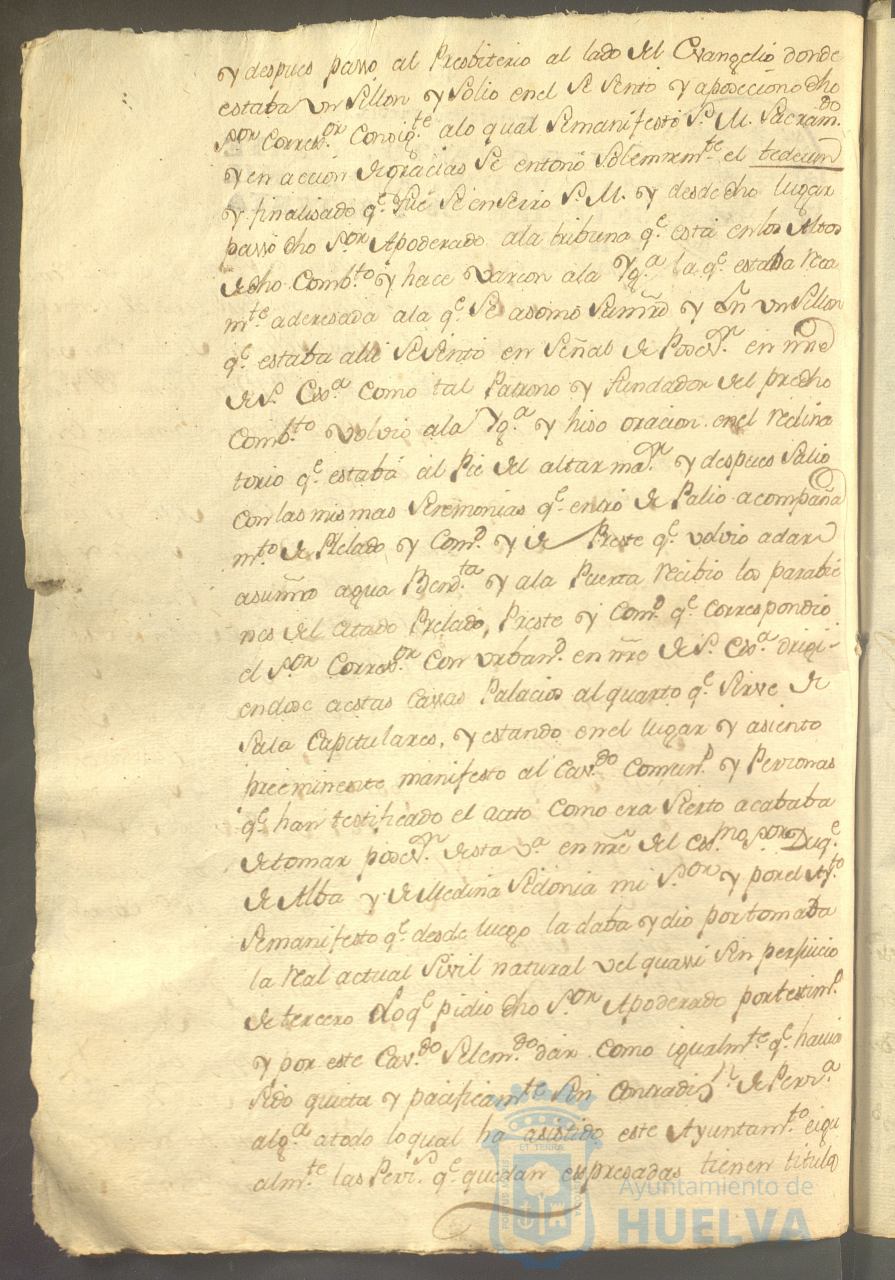 y despues passo al Presbiterio al lado del Evangelio donde
estaba un Sillon y Solio en el se sento y aposeciono dho
S.or Correx.or Consiq.te a lo qual se manifesto S. M. Sacram.do
y en accion de gracias se entonó Solemnem.te el tedeum
y finalisado q.e fue se enserro S. M. y desde dho lugar
passó dho S.or Apoderado a la tribuna q.e está en los Altos
de dho Comb.to y hace varcon a la Yg.a la q.e estaba rica
m.te aderesada a la q.e se asomo su mrd y en un Sillon
q.e estaba alli se sento en señal de Poses.n en nre
de S. Exs.a como tal Patrono y fundador del precho
Comb.to volvio a la Yg.a y hiso oracion en el reclina
torio q.e estaba al Pie del altar ma.r y despues salio
con las mismas seremonias q.e entro de Palio acompaña
m.to de Prelado y Com.d y de Preste q.e volvio a dar
a su mrd agua Bend.ta y a la Puerta recibio los parabie
nes del citado Prelado, Preste y Com.d q.e correspondio
el S.or Correx.or con urban.d en nre de S. Exs.a dirigi-
endose a estas Cassas Palacios al quarto q.e sirve de
Sala Capitulares, y estando en el lugar y asiento
preeminente manifesto al Cav.do Comun.d y Personas
q.e han testificado el acto como era sierto acababa
de tomar poses.n de esta v.a en nre del Exs.mo S.or Duq.e
de Alba y de Medina Sidonia mi S.or y por el Ay.to
se manifesto q.e desde luego la daba y dio por tomada
la real actual Sivil natural vel quassi sin perjuicio
de tercero Lo q.e pidio dho S.or Apoderado por testim.o
y por este Cav.do se le m.do dar como igualm.te q.e havia
sido quieta y pacificam.te sin contradis.n de Pers.a
alg.a a todo lo qual ha asistido este Ayuntam.to e igu
alm.te las Pers.s q.e quedan expresadas tienen titulo
Ayuntamiento de
HUELVA